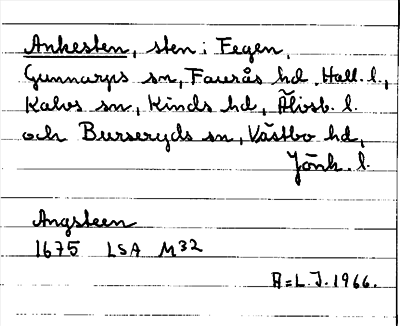 Ankesten, sten i Fegen,
Gunnarps sn, Faurås hd, Hall. l.,
Kalvs sn, Kinds hd, Älvsb. l.
och Burseryds sn, Västbo hd,
Jönk. l.
Angsteen
1675 LSA M32
A=L.J. 1966.